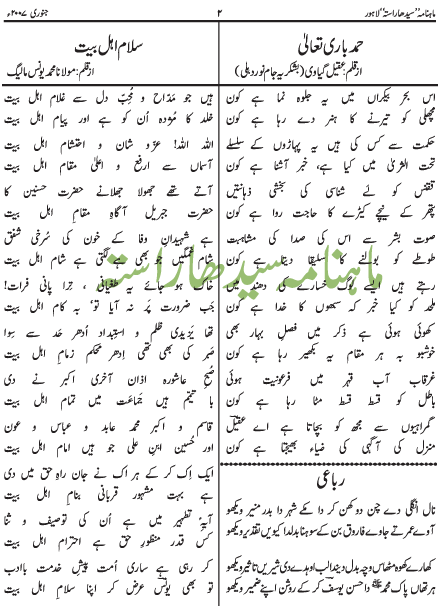 ماہنامہ ”سیدھا راستہ“ لاہور
۲
جنوری ۲۰۰۷ء
حمد باری تعالیٰ
از قلم: عقیل گیاوی (بشکریہ جام نور دہلی)
اس بحر بیکراں میں یہ جلوہ نما ہے کون
مچھلی کو تیرنے کا ہنر دے رہا ہے کون
حکمت سے کس کی ہیں یہ پہاڑوں کے سلسلے
تحت الثریٰ میں کیا ہے، خبر آشنا ہے کون
ققنس کو لے شناسی کی بخشی ذہانتیں
پتھر کے نیچے کیڑے کا حاجت روا ہے کون
صوت بشر سے اس کی صدا کی مشابہت
طوطے کو بولنے کا سلیقا دیتا ہے کون
رہتے ہیں ایسے لوگ خسارے کی دھند میں
ملحد کو کیا خبر کہ سبھوں کا خدا ہے کون
کھوئی ہوئی ہے ذکر میں فصلِ بہار بھی
خوشبو یہ ہر مقام پہ بکھیر رہا ہے کون
غرقاب آب قہر میں فرعونیت ہوئی
باطل کو قسط قسط مٹا رہا ہے کون
گمراہیوں سے مجھ کو بچاتا ہے اے عقیلؔ
منزل کی آگہی کی ضیاء بھیجتا ہے کون
رباعی
نال انگلی دے چن دو ٹکھن کر دا مکھ شہر دا بدر منیر ویکھو
آوے عمر تے جاوے فاروق بن کے سوہنا بدلدا کیویں تقدیر ویکھو
کھارے کھوہ مٹھاس وچ بدل دیندا لب اوہدے دی شیریں تاثیر ویکھو
ہر تھاں پاک محمد ﷺ دا حسن یوسف کر کے روشن اپنے ضمیر ویکھو
سلام اہل بیت
از قلم: مولانا محمد یونس مالیگ
ہیں جو مدّاح و مُحِبّ دل سے غلام اہل بیت
خلد کا مژدہ اُن کو ہے اور پیام اہل بیت
اللہ اللہ! عزو شان و احتشام اہل بیت
آسماں سے ارفع و اعلیٰ مقام اہل بیت
آتے تھے جھولا جھلانے حضرت حسنین کا
حضرت جبریل آگاہِ مقام اہل بیت
ہے شہیدانِ وفا کے خون کی سُرخی شفق
شام غمگیں جو بھی ہے لگتی ہے شام اہل بیت
خاک ہو جائے یہ طغیانی، تِرا پانی فرات!
جَب ضرورت پر نہ آیا تو، یہ کام اہل بیت
تھا یزیدی ظلم و استبداد اُدھر حد سے سِوا
صبر کی بھی تھی اِدھر محکم زمامِ اہل بیت
صُبح عاشورہ اذاں آخری اکبر نے دی
با تیمّم ہیں جماعت میں تمام اہل بیت
قاسم و اکبر محمد عابد و عباس و عون
اور حُسین ابنِ علی جو ہیں امام اہل بیت
ایک اِک کر کے ہر اک نے جان راہِ حق میں دی
ہے بہت مشہور قربانی بنامِ اہل بیت
آیۂ تطہیر میں ہے اُن کی توصیف و ثنا
کس قدر منظورِ حق ہے احترامِ اہل بیت
کر رہی ہے ساری اُمت پیش خدمت با ادب
تو بھی یونسؔ عرض کر اپنا سلامِ اہل بیت
ماہنامہ سیدھا راستہ